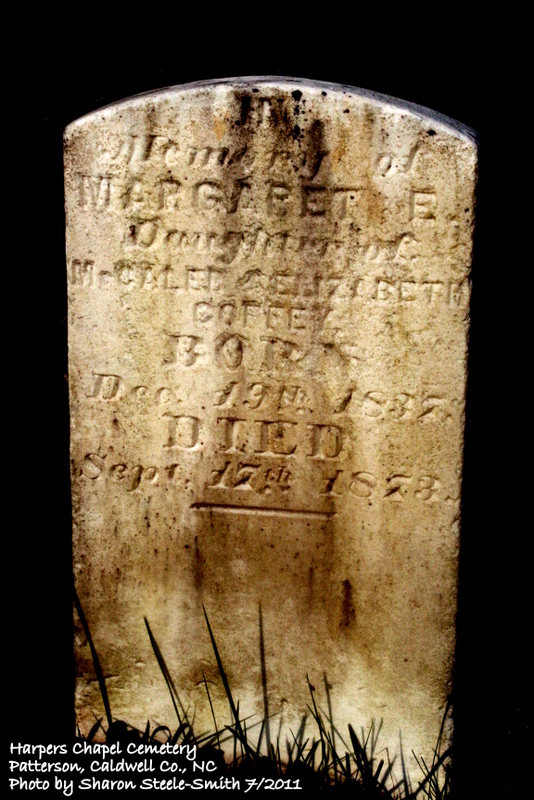 IN
Memory of
MARGARET E.
Daughter of
McCALEB & ELIZABETH
COFFEY
BORN
Dec. 19th, 1837.
DIED
Sept. 17th 1873.
Harpers Chapel Cemetery
Patterson, Caldwell Co., NC
Photo by Sharon Steele-Smith 7/2011